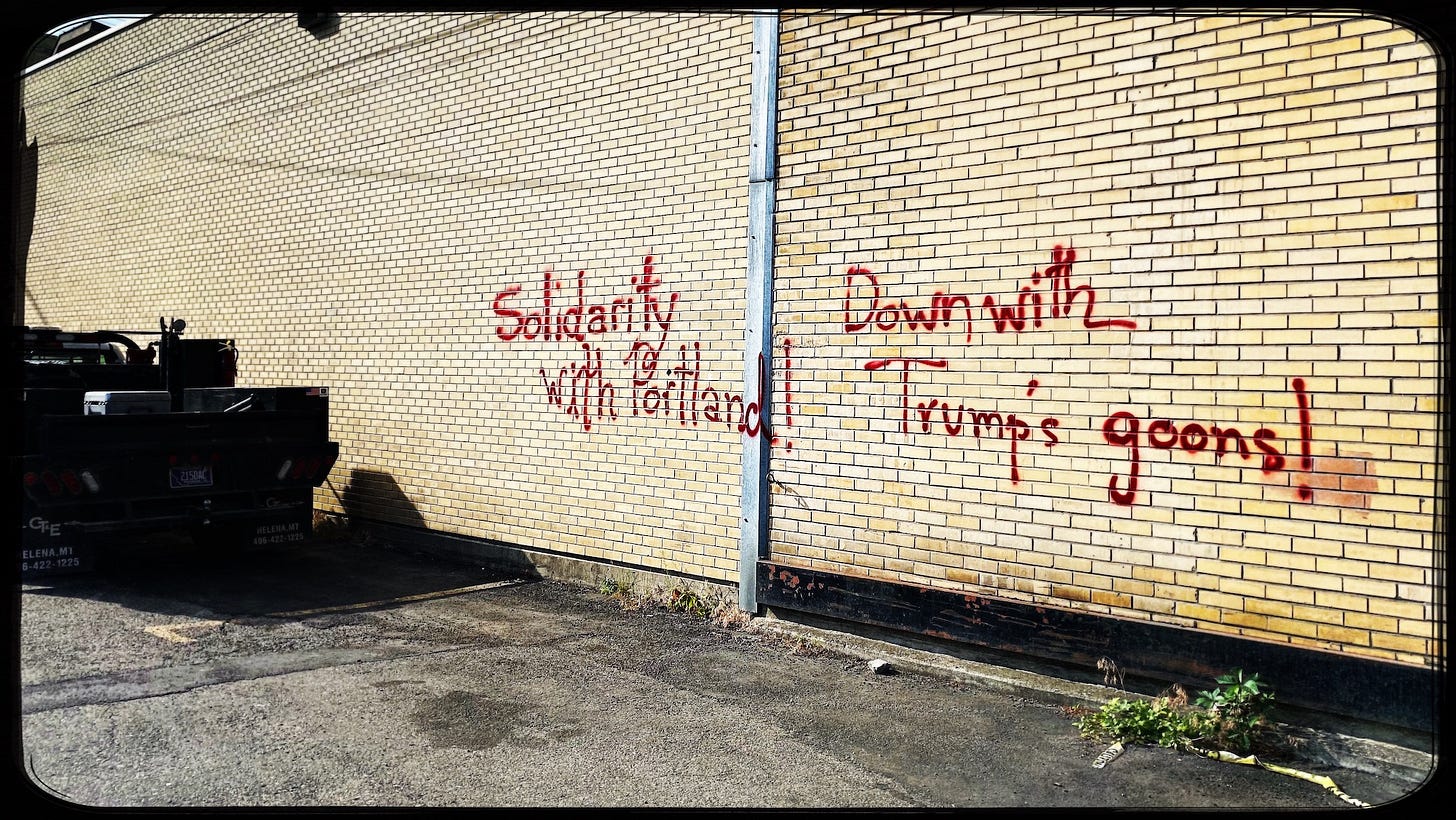 Solidarity
with Portland!
Down with
Trump's goons!
GTE
HELENA, MT
HELENA, MT
406-422-1225